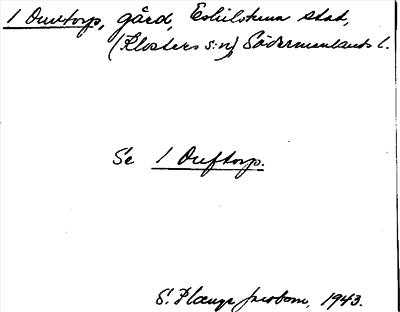 1 Ovetorp, gård, Eskilstuna stad,
(Klosters s:n) Södermanlands l.
Se 1 Ouftorp.
S. 1943.